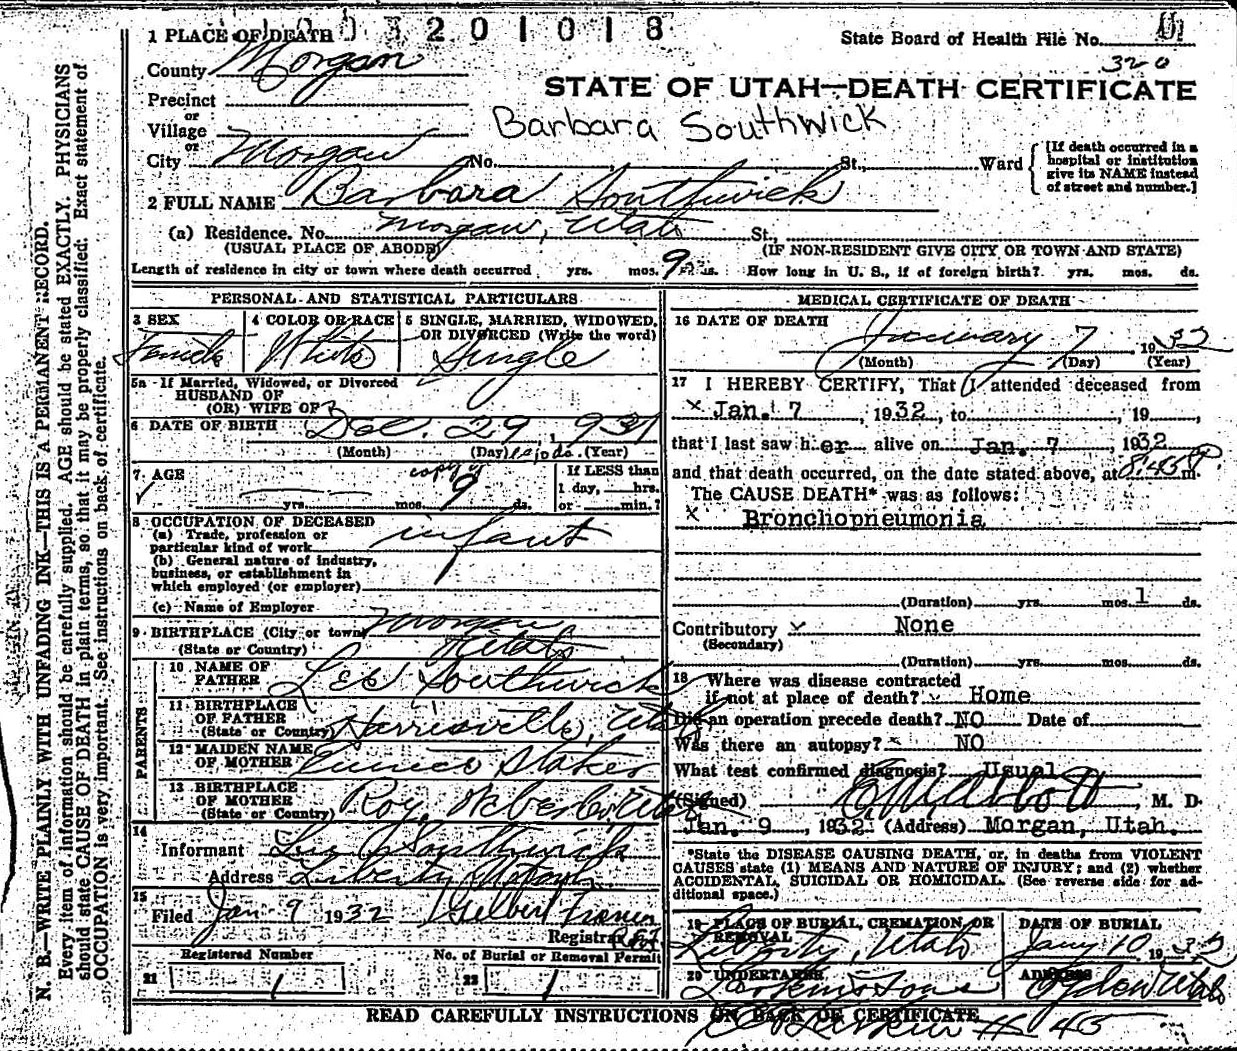 1 PLACE OF DEATH 0 3 2 0 1 0 1 8
State Board of Health File No.
320
County Morgan
STATE OF UTAH—DEATH CERTIFICATE
Precinct
or
Village
Barbara Southwick
or
City Morgan No. , St., Ward
[If death occurred in a
hospital or institution
give its NAME instead
of street and number.]
2 FULL NAME Barbara Southwick
(a) Residence. No. Morgan, Utah St.,
(USUAL PLACE OF ABODE) (IF NON-RESIDENT GIVE CITY OR TOWN AND STATE)
Length of residence in city or town where death occurred yrs. mos. 9 ds. How long in U. S., if of foreign birth? yrs. mos. ds.
PERSONAL AND STATISTICAL PARTICULARS
3 SEX
Female
4 COLOR OR RACE
White
5 SINGLE, MARRIED, WIDOWED,
OR DIVORCED (Write the word)
Single
5a If Married, Widowed, or Divorced
HUSBAND OF
(OR) WIFE OF
6 DATE OF BIRTH Dec. 29, 1931
(Month) (Day) (Year)
7 AGE
9
yrs. mos. ds.
If LESS than
1 day, hrs.
or min.?
8 OCCUPATION OF DECEASED
(a) Trade, profession or
particular kind of work infant
(b) General nature of industry,
business, or establishment in
which employed (or employer)
(c) Name of Employer
9 BIRTHPLACE (City or town) Morgan
(State or Country) Utah
PARENTS
10 NAME OF
FATHER Lee Southwick
11 BIRTHPLACE
OF FATHER
(State or Country) Harrisville, Utah
12 MAIDEN NAME
OF MOTHER Eunice Stakes
13 BIRTHPLACE
OF MOTHER
(State or Country) Roy, Weber Co, Utah
14
Informant Lee Southwick
Address Liberty, Utah
15
Filed Jan 9 1932 Gilbert Francis
Registrar
Registered Number
21 1
No. of Burial or Removal Permit
22 1
MEDICAL CERTIFICATE OF DEATH
16 DATE OF DEATH
January 7 1932
(Month) (Day) (Year)
17 I HEREBY CERTIFY, That I attended deceased from
x Jan. 7 , 1932, to , 19 ,
that I last saw her alive on Jan. 7 1932
and that death occurred, on the date stated above, at 8:45P. m.
The CAUSE DEATH* was as follows:
x Bronchopneumonia
(Duration) yrs. mos. 1 ds.
Contributory None
(Secondary)
(Duration) yrs. mos. ds.
18 Where was disease contracted
if not at place of death? Home
Did an operation precede death? NO Date of
Was there an autopsy? NO
What test confirmed diagnosis? Usual
(Signed) E M Abbott , M. D.
Jan. 9 , 1932 (Address) Morgan, Utah.
*State the DISEASE CAUSING DEATH, or, in deaths from VIOLENT
CAUSES state (1) MEANS AND NATURE OF INJURY; and (2) whether
ACCIDENTAL, SUICIDAL OR HOMICIDAL. (See reverse side for ad-
ditional space.)
19 PLACE OF BURIAL, CREMATION, OR
REMOVAL
Liberty, Utah
DATE OF BURIAL
Jany 10 1932
20 UNDERTAKER
Larkin & Sons
ADDRESS
Ogden Utah
READ CAREFULLY INSTRUCTIONS ON BACK OF CERTIFICATE
# 45
N. B.—WRITE PLAINLY WITH UNFADING INK—THIS IS A PERMANENT RECORD.
Every item of information should be carefully supplied. AGE should be stated EXACTLY. PHYSICIANS
should state CAUSE OF DEATH in plain terms, so that it may be properly classified. Exact statement of
OCCUPATION is very important. See instructions on back of certificate.